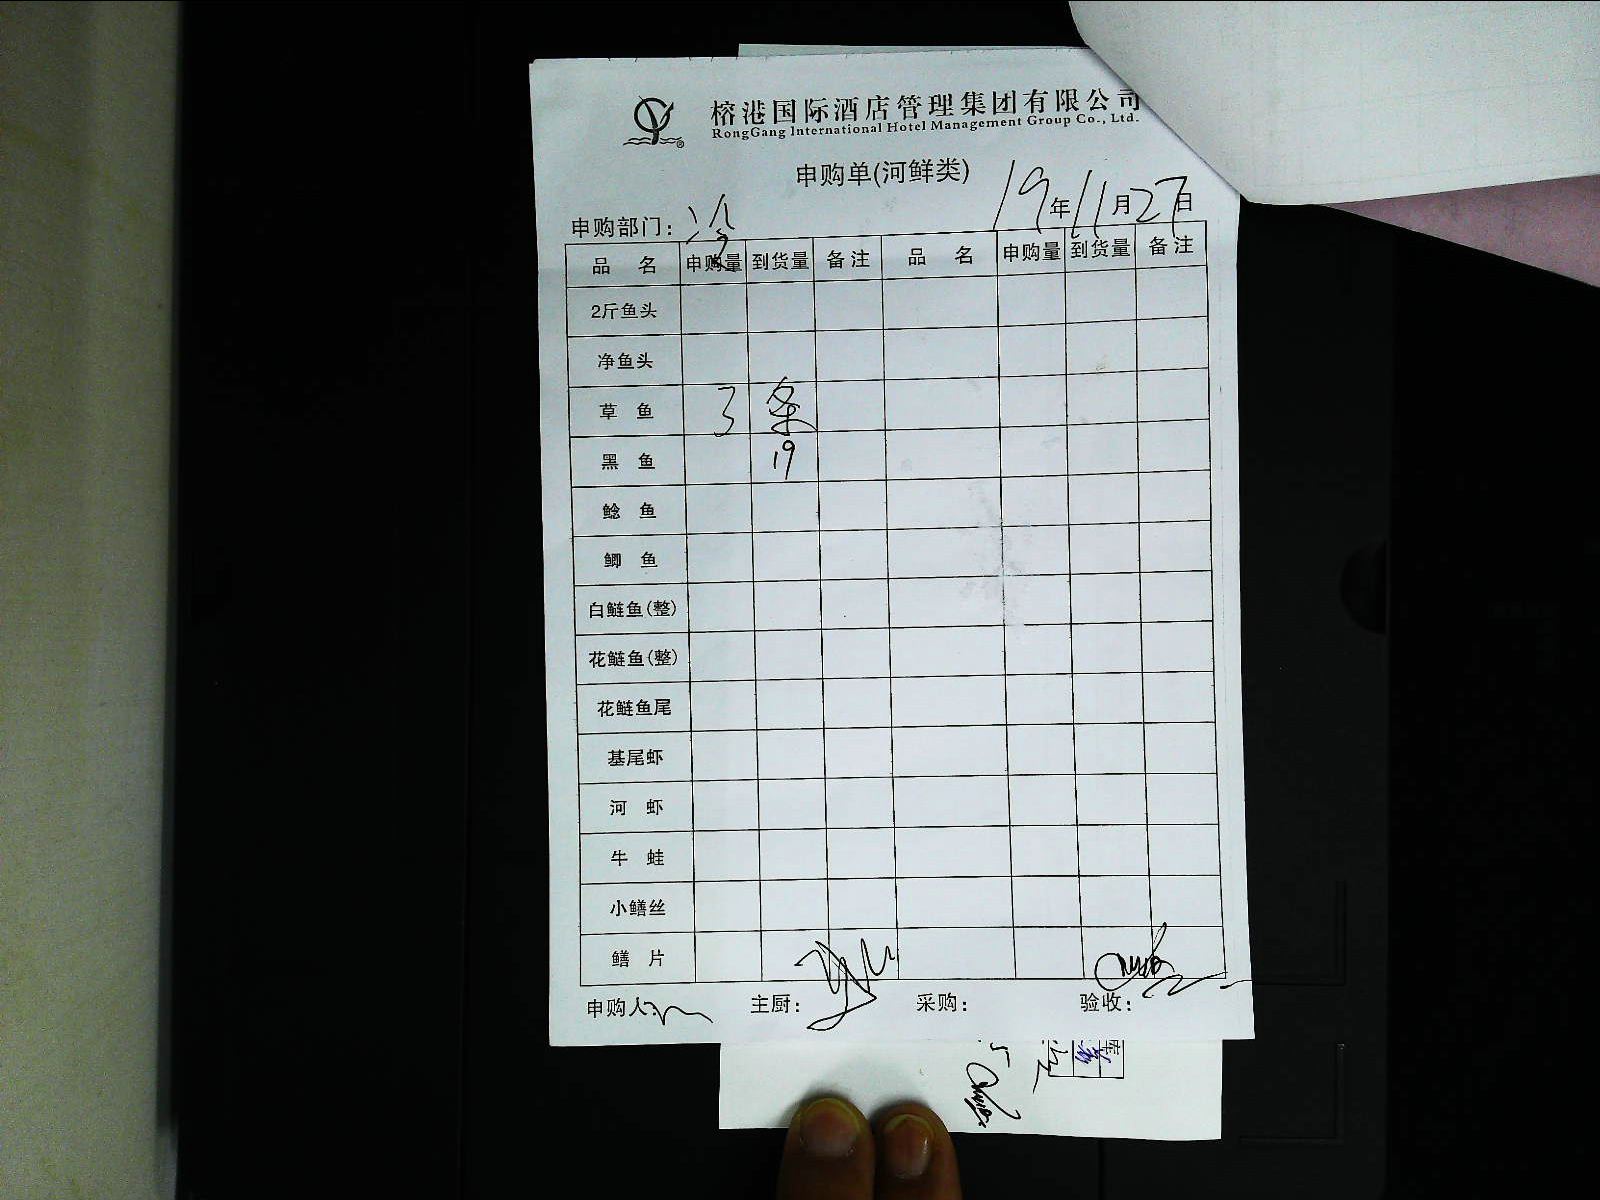 榕港国际酒店管理集团有限公司
RongGang International Hotel Management Group Co., Ltd.
申购单(河鲜类)
申购部门: 冷 19年11月27日
品 名 申购量 到货量 备注 品 名 申购量 到货量 备注
2斤鱼头
净鱼头
草 鱼 3 条
黑 鱼 19
鲶 鱼
鲫 鱼
白鲢鱼(整)
花鲢鱼(整)
花鲢鱼尾
基尾虾
河 虾
牛 蛙
小鳝丝
鳝 片
申购人: 主厨: 采购: 验收:
库